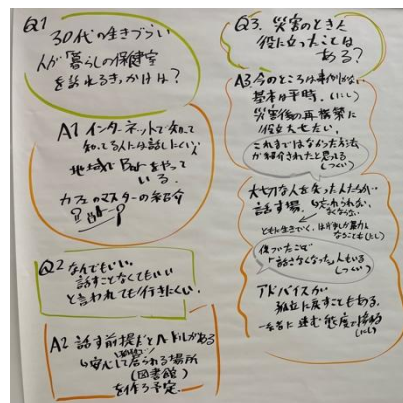 Q1
30代の生きづらい
人が「暮らしの保健室」
を訪れるきっかけは?
A1 インターネットで知って
知ってる人には話しにくい
地域でBarをやって
いる。
カフェのマスターの紹介
Q2 なんでもいい。
話すことなくてもいい
と言われても行きにくい。
A2 話す前提だとハードルがある
安心して居られる場所
(図書館)
を作る予定。
Q3. 災害のとき
役に立ったことは
ある?
A3 今のところは事例がない
基本は平時。(にし)
災害後の再構築に
役立たせたい。
これまではなかった方法
が紹介されたと思える
大切な人を失った人たちが
話す場。
ともに生きていく、
なることも(にし)
傷ついたことで
「話さなくなった」人もいる
アドバイスが
孤立に戻すこともある。
一緒に悩む態度で
(にし)